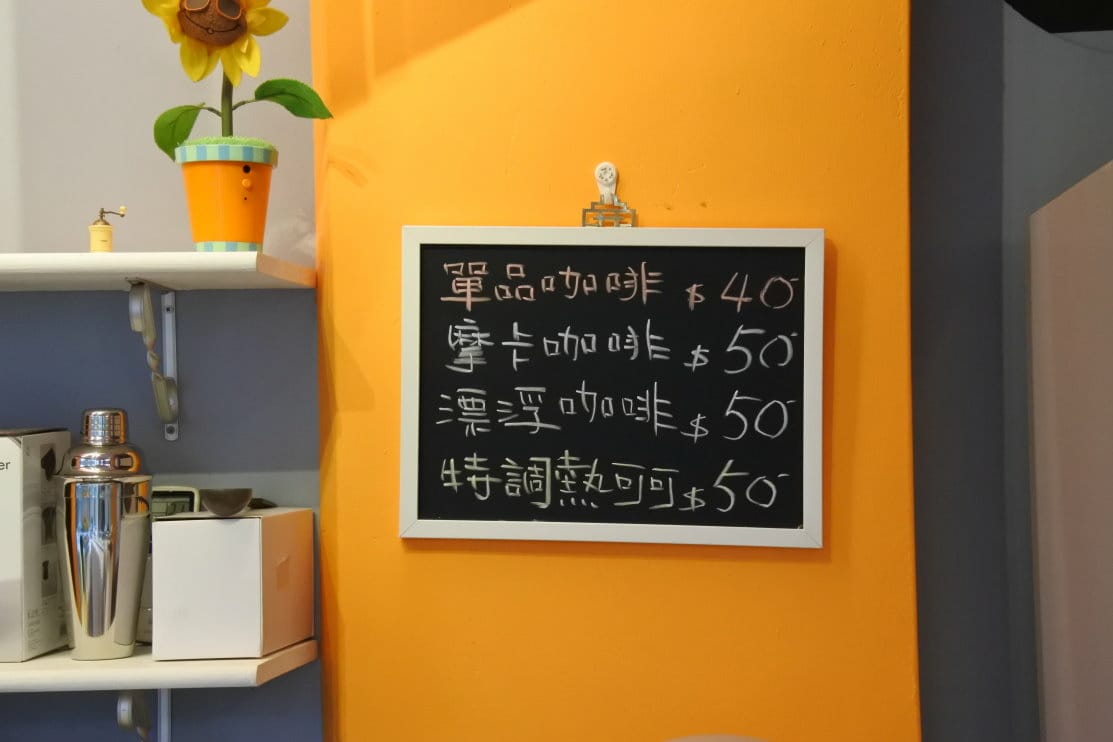 單品咖啡 $40
摩卡咖啡 $50
漂浮咖啡 $50
特調熱可可 $50
er